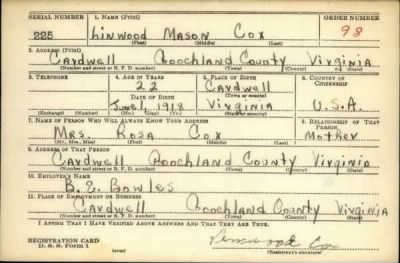 SERIAL NUMBER 1. NAME (Print) ORDER NUMBER
225 Linwood Mason Cox 98
(First) (Middle) (Last)
2. ADDRESS (Print)
Cardwell Goochland County Virginia
(Number and street or R. F. D. number) (Town) (County) (State)
3. TELEPHONE 4. AGE IN YEARS 5. PLACE OF BIRTH 6. COUNTRY OF CITIZENSHIP
22 Cardwell
DATE OF BIRTH (Town or county)
June 1 1918 Virginia U.S.A.
(Exchange) (Number) (Mo.) (Day) (Yr.) (State or country)
7. NAME OF PERSON WHO WILL ALWAYS KNOW YOUR ADDRESS 8. RELATIONSHIP OF THAT PERSON
Mrs. Rosa Cox Mother
(Mr., Mrs., Miss) (First) (Middle) (Last)
9. ADDRESS OF THAT PERSON
Cardwell Goochland County Virginia
(Number and street or R. F. D. number) (Town) (County) (State)
10. EMPLOYER'S NAME
B. E. Bowles
11. PLACE OF EMPLOYMENT OR BUSINESS
Cardwell Goochland County Virginia
(Number and street or R. F. D. number) (Town) (County) (State)
I AFFIRM THAT I HAVE VERIFIED ABOVE ANSWERS AND THAT THEY ARE TRUE.
REGISTRATION CARD
D. S. S. Form 1 (over) (Registrant's signature)